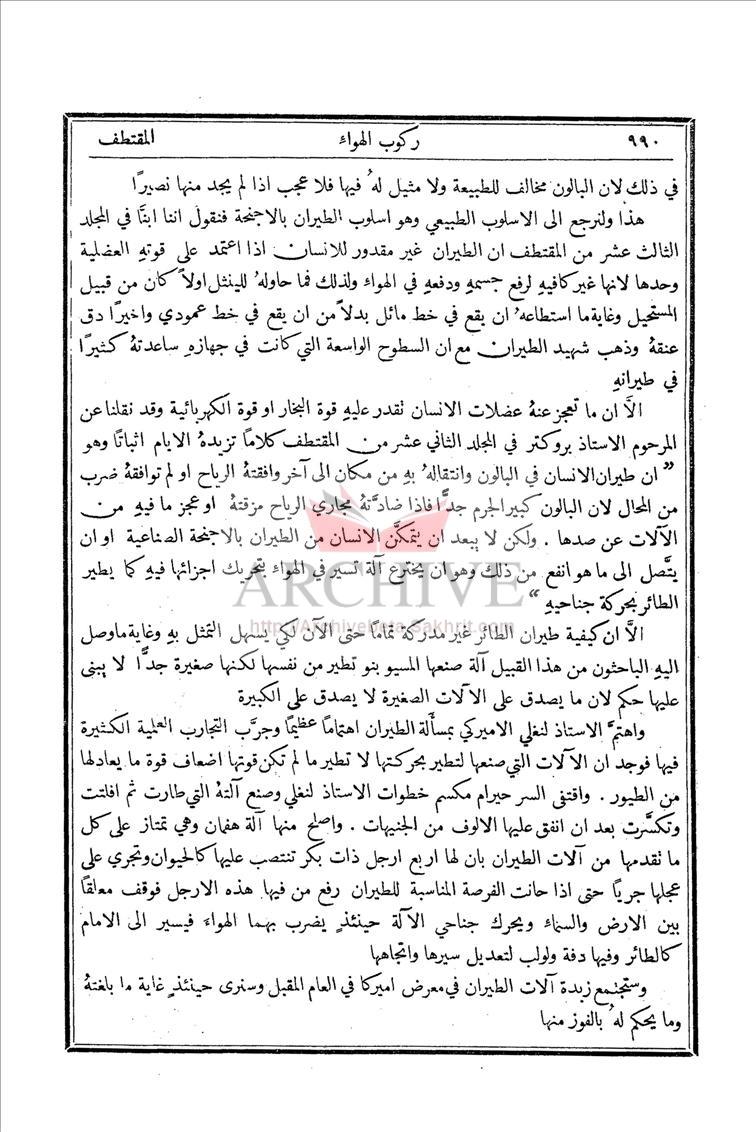 ٩٩٠ ركوب الهواء المقتطف
في ذلك لان البالون مخالف للطبيعة ولا مثيل لهُ فيها فلا عجب اذا لم يجد منها نصيرًا
هذا ولنرجع الى الاسلوب الطبيعي وهو اسلوب الطيران بالاجنحة فنقول اننا ابنَّا في المجلد
الثالث عشر من المقتطف ان الطيران غير مقدور للانسان اذا اعتمد على قوتهِ العضلية
وحدها لانها غير كافيه لرفع جسمهِ ودفعهِ في الهواء ولذلك فما حاولهُ للينثل اولاً كان من قبيل
المستحيل وغاية ما استطاعهُ ان يقع في خط مائل بدلاً من ان يقع في خط عمودي واخيرًا دق
عنقهُ وذهب شهيد الطيران مع ان السطوح الواسعة التي كانت في جهازهِ ساعدتهُ كثيرًا
في طيرانهِ
الَّا ان ما تعجز عنهُ عضلات الانسان تقدر عليهِ قوة البخار او قوة الكهربائية وقد نقلنا عن
المرحوم الاستاذ بروكتر في المجلد الثاني عشر من المقتطف كلامًا تزيدهُ الايام اثباتًا وهو
" ان طيران الانسان في البالون وانتقالهُ بهِ من مكان الى آخر وافقتهُ الرياح او لم توافقهُ ضرب
من المحال لان البالون كبير الجرم جدًّا فاذا ضادَّتهُ مجاري الرياح مزقتهُ او عجز ما فيهِ من
الآلات عن صدها . ولكن لا يبعد ان يتمكَّن الانسان من الطيران بالاجنحة الصناعية او ان
يتَّصل الى ما هو انفع من ذلك وهو ان يخترع آلة تسير في الهواء بتحريك اجزائها فيهِ كما يطير
الطائر بحركة جناحيهِ "
الَّا ان كيفية طيران الطائر غير مدركة تمامًا حتى الآن لكي يسهل التمثل بهِ وغاية ما وصل
اليهِ الباحثون من هذا القبيل آلة صنعها المسيو بنو تطير من نفسها لكنها صغيرة جدًّا لا يبنى
عليها حكم لان ما يصدق على الآلات الصغيرة لا يصدق على الكبيرة
واهتمَّ الاستاذ لنغلي الاميركي بمسألة الطيران اهتمامًا عظيمًا وجرَّب التجارب العلمية الكثيرة
فيها فوجد ان الآلات التي صنعها لتطير بحركتها لا تطير ما لم تكن قوتها اضعاف قوة ما يعادلها
من الطيور . واقتفى السر حيرام مكسم خطوات الاستاذ لنغلي وصنع آلتهُ التي طارت ثم افلتت
وتكسَّرت بعد ان انفق عليها الالوف من الجنيهات . واصلح منها آلة هفمان وهي تمتاز على كل
ما تقدمها من آلات الطيران بان لها اربع ارجل ذات بكر تنتصب عليها كالحيوان وتجري على
عجلها جريًا حتى اذا حانت الفرصة المناسبة للطيران رفع من فيها هذه الارجل فوقف معلقًا
بين الارض والسماء ويحرك جناحي الآلة حينئذٍ يضرب بهما الهواء فيسير الى الامام
كالطائر وفيها دفة ولولب لتعديل سيرها واتجاهها
وستجتمع زبدة آلات الطيران في معرض اميركا في العام المقبل وسنرى حينئذٍ غاية ما بلغتهُ
وما يحكم لهُ بالفوز منها
ARCHIVE
http://Archivebeta.Sakhrit.com